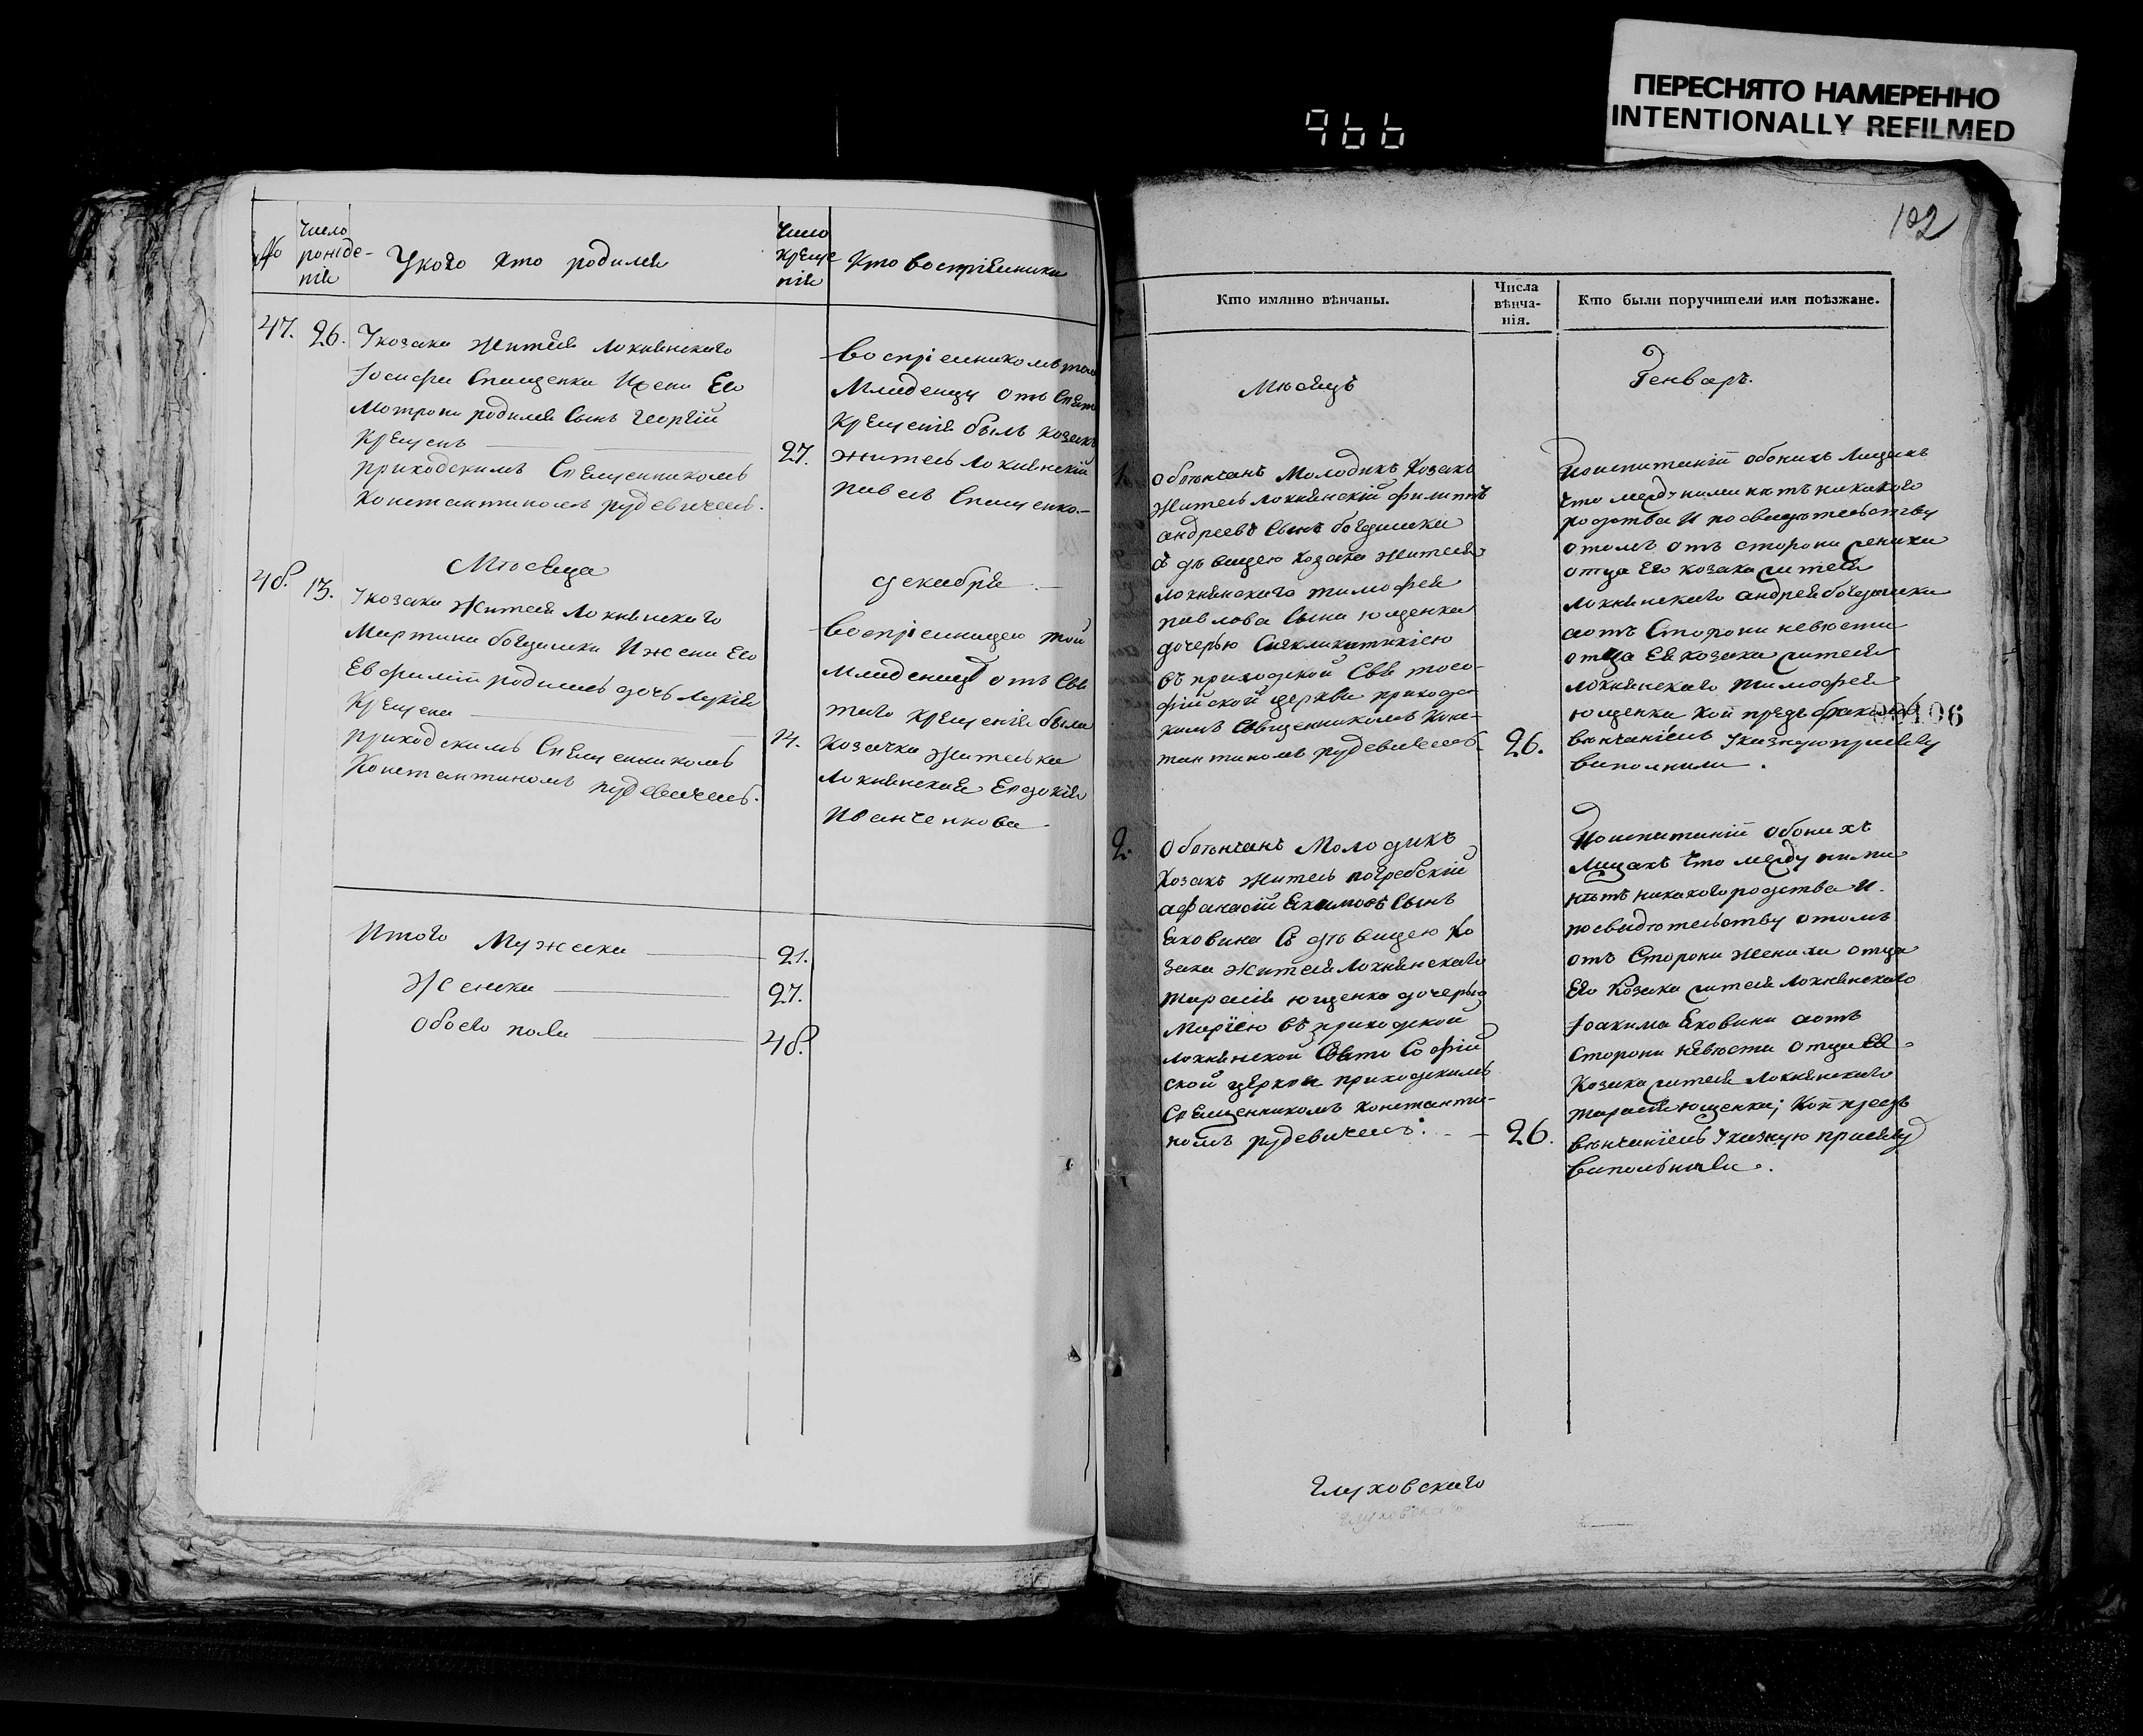 ПЕРЕСНЯТО НАМЕРЕННО
INTENTIONALLY REFILMED
966
№
Число рожде-нія
У кого кто родился
Число креще нія
Кто воспріемники
47.
26.
У козака жителя Локнянскаго
Іосифа Спащенка и жены Его
Мотроны родился Сынъ Георгій
Крещенъ
27.
приходскимъ Священникомъ
Константиномъ рудевичемъ.
воспріемникомъ тому
Младенцу отъ Свято
Крещенія былъ козакъ
житель Локнянскій
павелъ Спащенко.
Мѣсяца
декабря
48.
13.
У козака жителя Локнянскаго
Мартина богдашки и жены Его
Евфиміи родилась дочь Лукія
Крещена
14.
приходскимъ Священникомъ
Константиномъ рудевичемъ.
воспріемницею той
Младеницы отъ Свя
таго крещенія была
Козачка жителька
Локнянская Евдокія
Иванченкова
Итого Мужеска
21.
Женска
27.
Обоего пола
48.
102
Кто имянно вѣнчаны.
Числа вѣнча-нія.
Кто были поручители или поѣзжане.
Мѣсяцъ
Генварь.
1.
Обвѣнчанъ Молодикъ Козакъ
житель Локнянскій филиппъ
андреевъ Сынъ богдашка
съ дѣвицею козака жителя
Локнянскаго тимофея
павлова Сына ющенка
дочерью
въ приходской Свя тосо-
фійской церкви приходс
кимъ Священникомъ Конс-
тантиномъ рудевичемъ
26.
По испитаніи обоихъ Лицахъ
что между ними нѣтъ никакого
родства и по свидѣтельству
отомъ отъ стороны жениха
отца Его козака жителя
Локнянскаго андрея богдашки
аотъ Стороны невѣсты
отца Ея козака жителя
Локнянскаго тимофея
ющенка кои предъ браком
вѣнчаніемъ Указную присягу
виполнили.
106
2.
Обвѣнчанъ Молодикъ
Козакъ житель погребскій
афанасій Екимовъ Сынъ
Ековина Съ дѣвицею Ко
зака жителя Локнянскаго
тарасія ющенка дочерью
Маріею въ приходской
Локнянской Свято Софій
ской церкви приходскимъ
Священникомъ Константи-
номъ рудевичемъ.
26.
По испитаніи обоихъ
Лицахъ что между ними
нѣтъ никакого родства и
посвидѣтельству отомъ
отъ Стороны жениха отца
Его Козака жителя Локнянскаго
Іоакима Ековини аотъ
стороны невѣсты отца Ея
Козака жителя Локнянскаго
тарасія ющенка; Кои предъ
вѣнчаніемъ Указную присягу
виполнили.
Глуховскаго